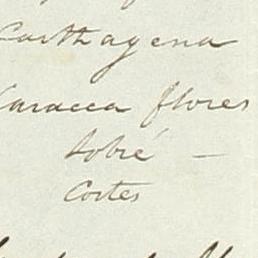 Carthagena
Caracca flores
Sobré —
Cortes